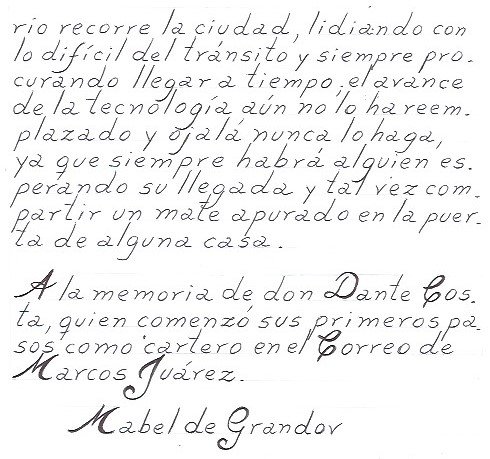 rio recorre la ciudad, lidiando con
lo difícil del tránsito y siempre pro-
curando llegar a tiempo, el avance
de la tecnología aún no lo ha reem-
plazado y ojalá nunca lo haga,
ya que siempre habrá alguien es-
perando su llegada y tal vez com-
partir un mate apurado en la puer-
ta de alguna casa.
A la memoria de don Dante Cos-
ta, quien comenzó sus primeros pa-
sos como cartero en el Correo de
Marcos Juárez.
Mabel de Grandov